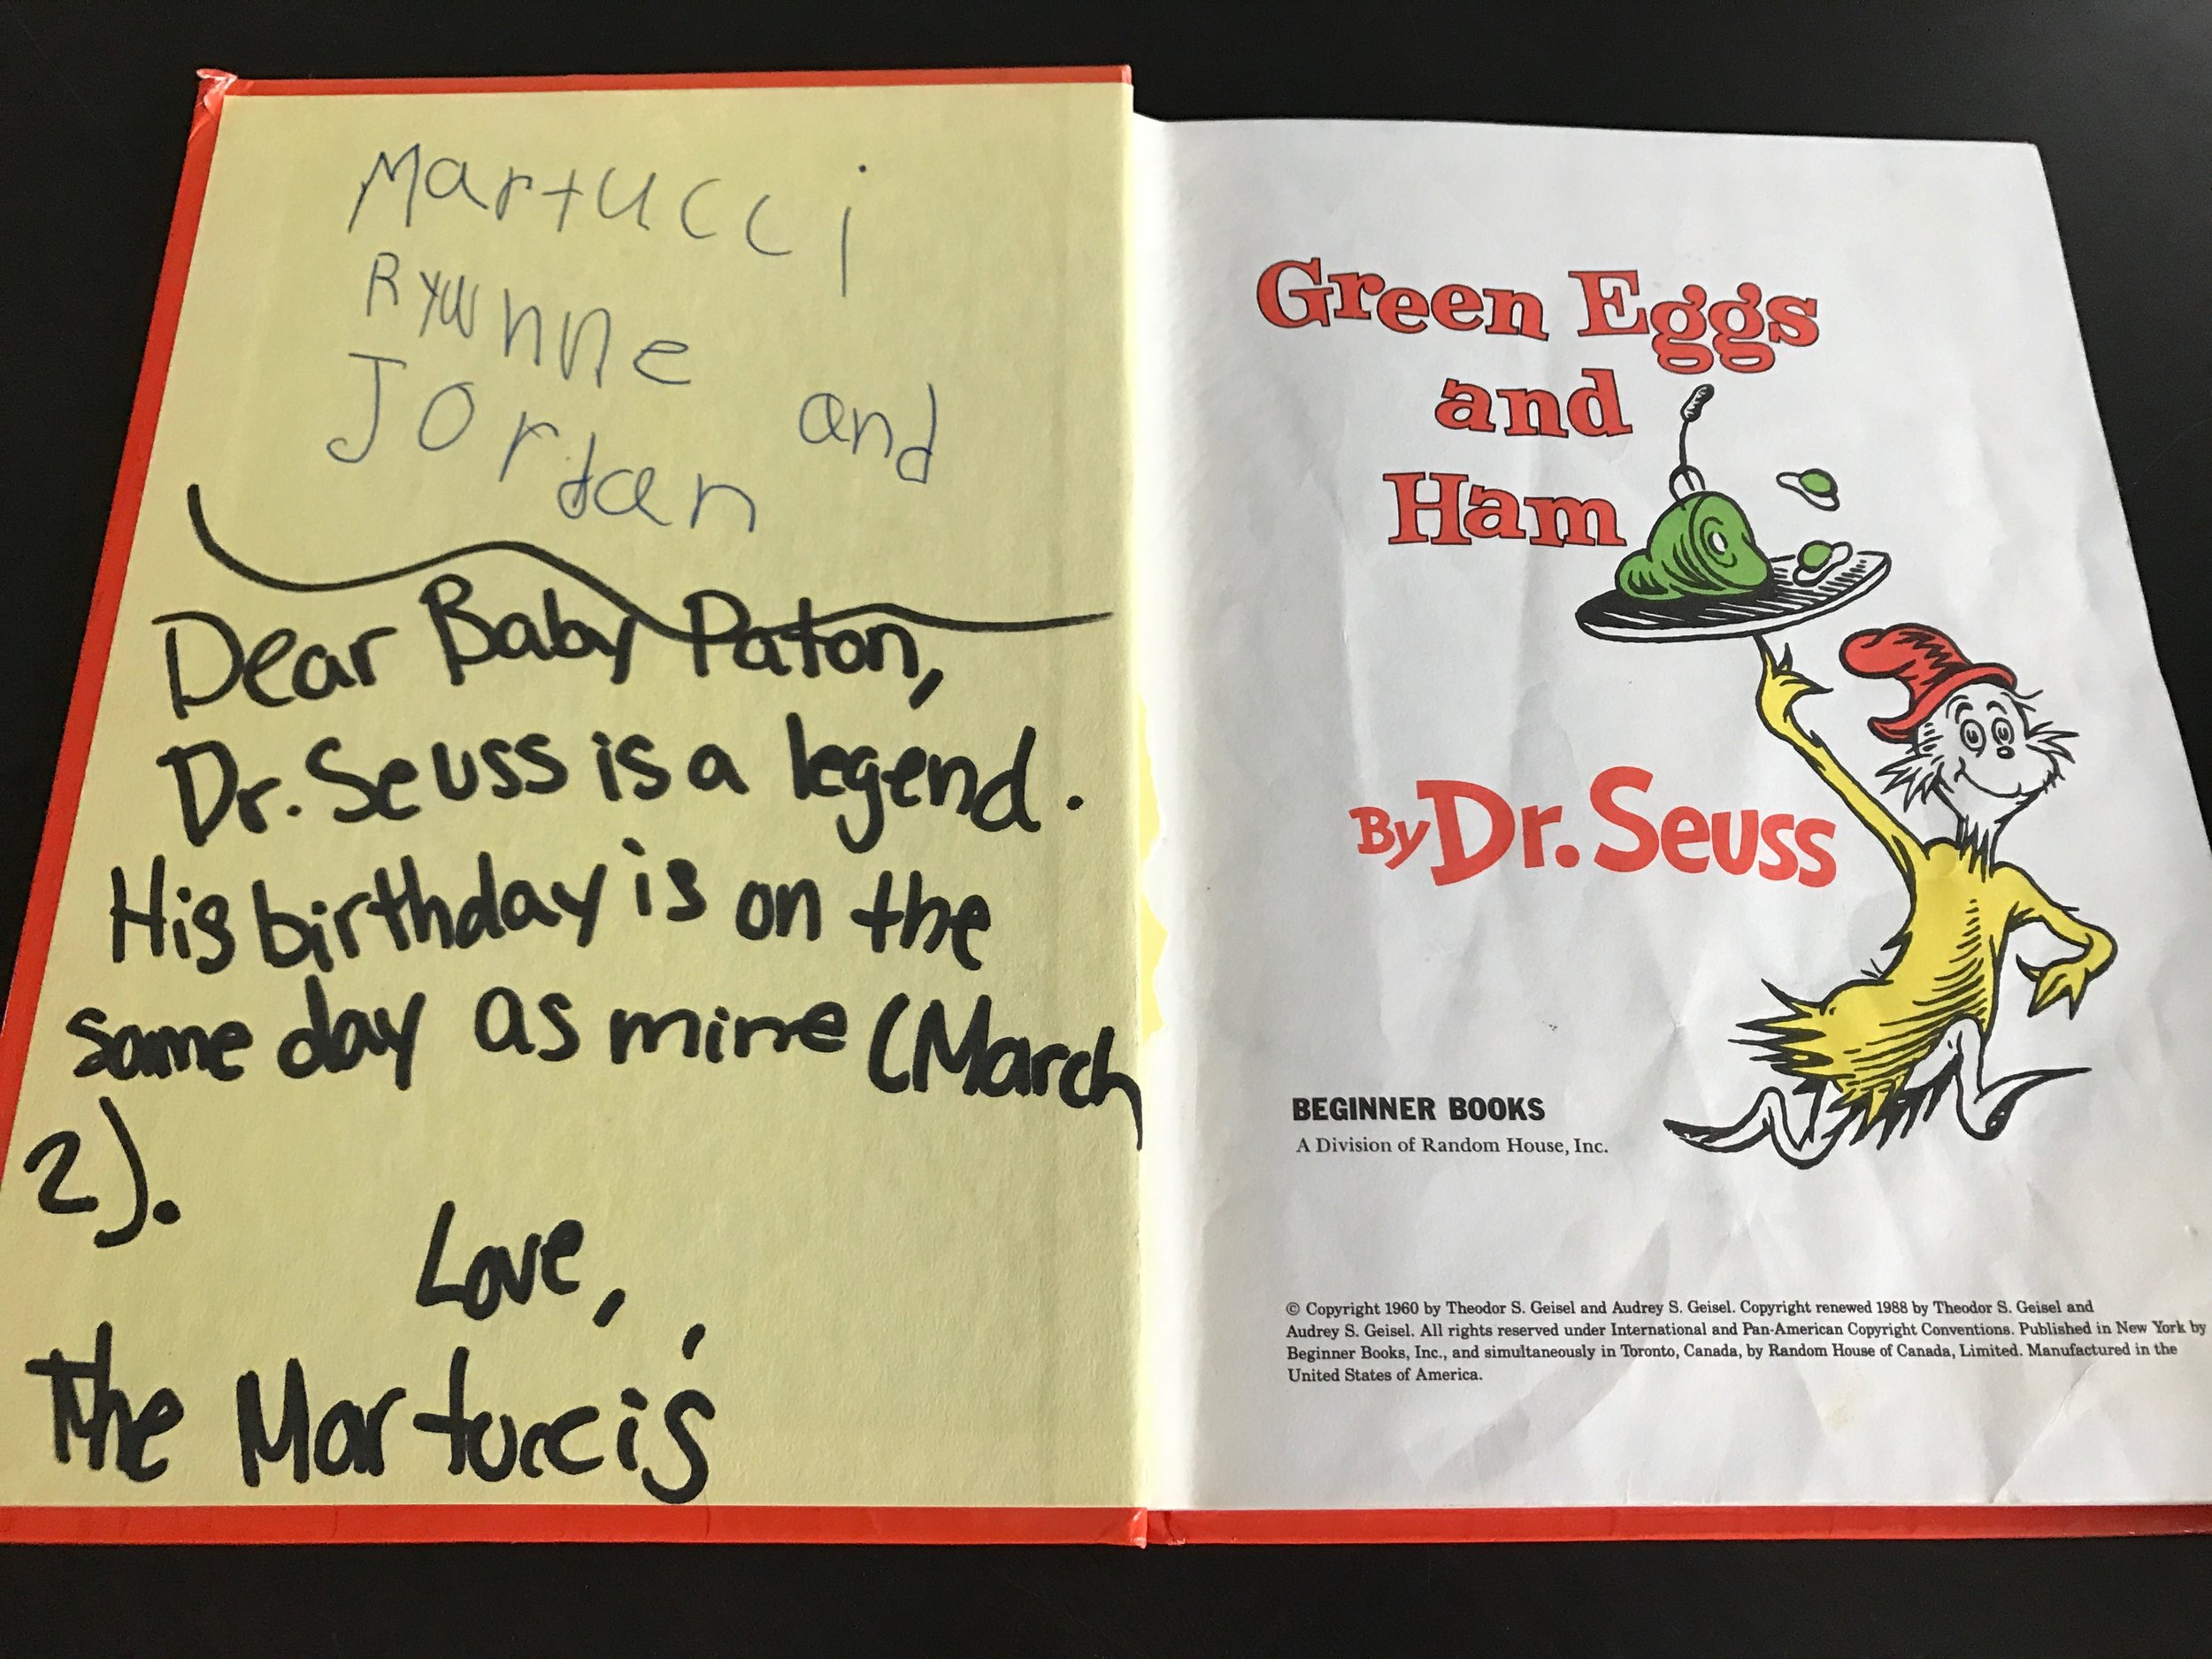 Martucci
Rywnne
Jordan and
Dear Baby Paton,
Dr. Seuss is a legend.
His birthday is on the
same day as mine (March
2).
Love,
The Martucci's
Green Eggs
and
Ham
By Dr. Seuss
BEGINNER BOOKS
A Division of Random House, Inc.
© Copyright 1960 by Theodor S. Geisel and Audrey S. Geisel. Copyright renewed 1988 by Theodor S. Geisel and
Audrey S. Geisel. All rights reserved under International and Pan-American Copyright Conventions. Published in New York by
Beginner Books, Inc., and simultaneously in Toronto, Canada, by Random House of Canada, Limited. Manufactured in the
United States of America.